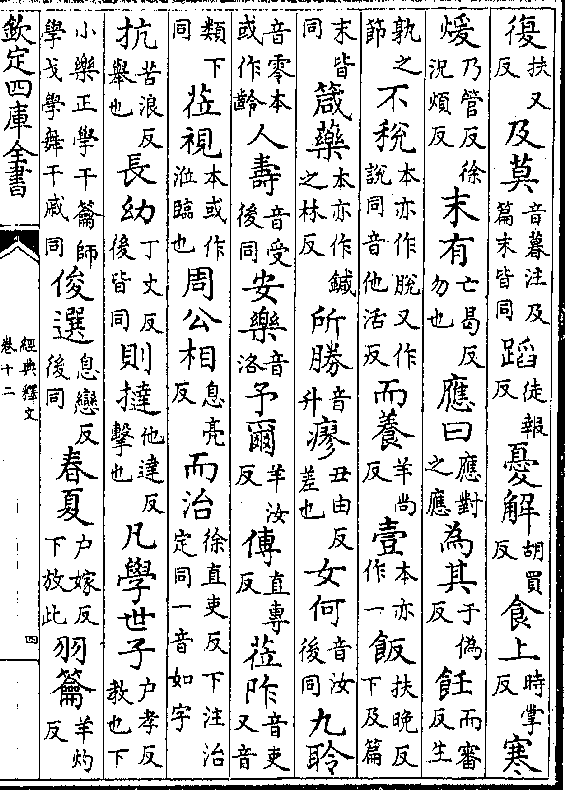 復扶又反及莫音暮注及篇末皆同蹈徒報反憂解胡買反食上時掌反寒
煖乃管反徐況煩反末有亡曷反勿也應曰應對之應為其于偽反飪而審反生
孰之節不稅本亦作脫又作說同音他活反而養羊尚反壹本亦作一飯扶晚反下及篇
末皆同箴藥本亦作鍼之林反所勝音升瘳丑由反差也女何音汝後同九聆
音零本或作齡人壽音受後同安樂音洛予爾羊汝反傅直專反莅阼音吏又音
類下同莅視本或作涖臨也周公相息亮反而治徐直吏反下注治定同一音如字
抗苦浪反舉也長幼丁丈反後皆同則撻他達反擊也凡學世子户孝反教也下
小樂正學干籥師學戈學舞干戚同俊選息戀反後同春夏户嫁反下放此羽籥羊灼反
欽定四庫全書
經典釋文
卷十二
四